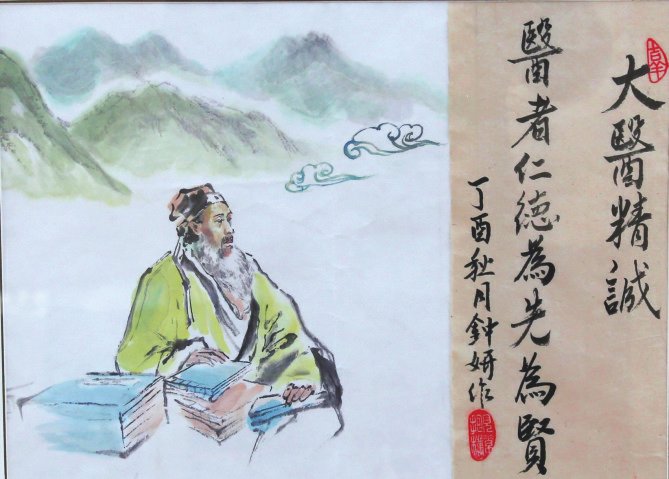 大醫精誠
醫者仁德為先為賢
丁酉秋月鈡妍作